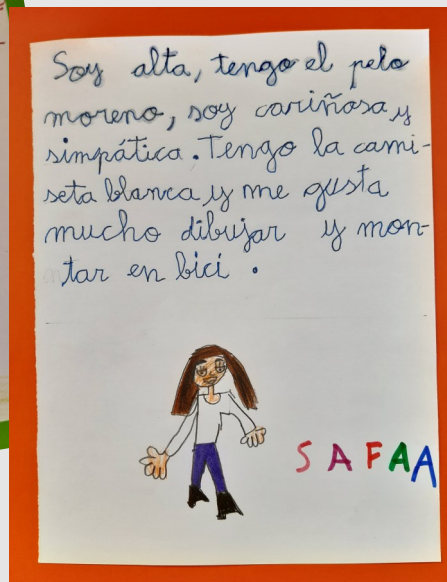 Soy alta, tengo el pelo
moreno, soy cariñosa y
simpática. Tengo la cami-
seta blanca y me gusta
mucho dibujar y mon-
tar en bici.
SAFAA